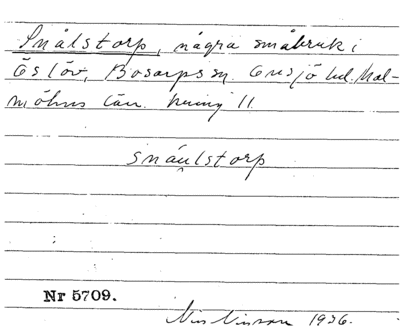 Snålstorp, några småbruk i
Östöv, Bosarps sn. Onsjö hd. Mal-
möhus län.
snáu̯lstorp
Nr 5709.
Nils Nilsson 1936.